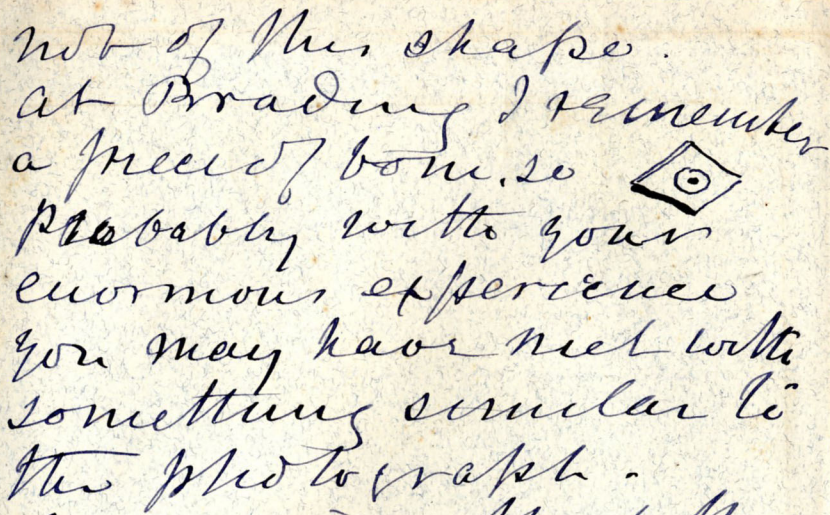 not of this shape.
at Brading I remember
a piece of bone. so
Probably with your
enormous experience
you may have met with
something similar to
the photograph.